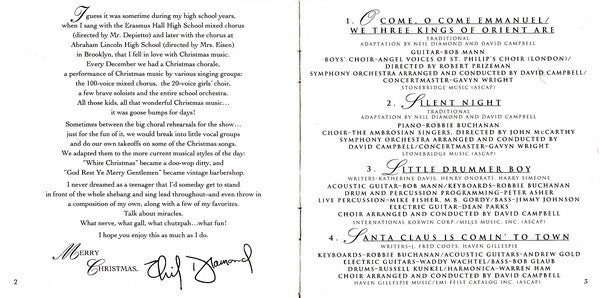 Guess it was sometime during my high school years,
when I sang with the Erasmus Hall High School mixed chorus
(directed by Mr. Depietto) and later with the chorus at
Abraham Lincoln High School (directed by Mrs. Eisen)
in Brooklyn, that I fell in love with Christmas music.
Every December we had a Christmas chorale,
a performance of Christmas music by various singing groups:
the 100-voice mixed chorus, the 20-voice girls' choir,
a few brave soloists and the entire school orchestra.
All those kids, all that wonderful Christmas music…
it was goose bumps for days!
Sometimes between the big choral rehearsals for the show…
just for the fun of it, we would break into little vocal groups
and do our own takeoffs on some of the Christmas songs.
We adapted them to the more current musical styles of the day:
"White Christmas" became a doo-wop ditty, and
"God Rest Ye Merry Gentlemen" became vintage barbershop.
I never dreamed as a teenager that I'd someday get to stand
in front of the whole shebang and sing lead throughout-and even throw in
a composition of my own, along with a few of my favorites.
Talk about miracles.
What nerve, what gall, what chutzpah…what fun!
I hope you enjoy this as much as I do.
MERRY
CHRISTMAS,
Neil Diamond
2
1. O COME, O COME EMMANUEL/
WE THREE KINGS OF ORIENT ARE
TRADITIONAL
ADAPTATION BY NEIL DIAMOND AND DAVID CAMPBELL
GUITAR-BOB MANN
BOYS' CHOIR-ANGEL VOICES OF ST. PHILIP'S CHOIR (LONDON)/
DIRECTED BY ROBERT PRIZEMAN
SYMPHONY ORCHESTRA ARRANGED AND CONDUCTED BY DAVID CAMPBELL/
CONCERTMASTER-GAVYN WRIGHT
STONEBRIDGE MUSIC (ASCAP)
2. SILENT NIGHT
TRADITIONAL
ADAPTATION BY NEIL DIAMOND AND DAVID CAMPBELL
PIANO-ROBBIE BUCHANAN
CHOIR-THE AMBROSIAN SINGERS, DIRECTED BY JOHN McCARTHY
SYMPHONY ORCHESTRA ARRANGED AND CONDUCTED BY
DAVID CAMPBELL/CONCERTMASTER-GAVYN WRIGHT
STONEBRIDGE MUSIC (ASCAP)
3. LITTLE DRUMMER BOY
WRITERS-KATHERINE DAVIS, HENRY ONORATI, HARRY SIMEONE
ACOUSTIC GUITAR-BOB MANN/KEYBOARDS-ROBBIE BUCHANAN
DRUM AND PERCUSSION PROGRAMMING-PETER ASHER
LIVE PERCUSSION-MIKE FISHER, M.B. GORDY/BASS-JIMMY JOHNSON
ELECTRIC GUITAR-DEAN PARKS
CHOIR ARRANGED AND CONDUCTED BY DAVID CAMPBELL
INTERNATIONAL KORWIN CORP/MILLS MUSIC, INC. (ASCAP)
4. SANTA CLAUS IS COMIN' TO TOWN
WRITERS-J. FRED COOTS, HAVEN GILLESPIE
KEYBOARDS-ROBBIE BUCHANAN/ACOUSTIC GUITARS-ANDREW GOLD
ELECTRIC GUITARS-WADDY WACHTEL/BASS-BOB GLAUB
DRUMS-RUSSELL KUNKEL/HARMONICA-WARREN HAM
CHOIR ARRANGED AND CONDUCTED BY DAVID CAMPBELL
HAVEN GILLESPIE MUSIC/EMI FEIST CATALOG INC. (ASCAP)
3